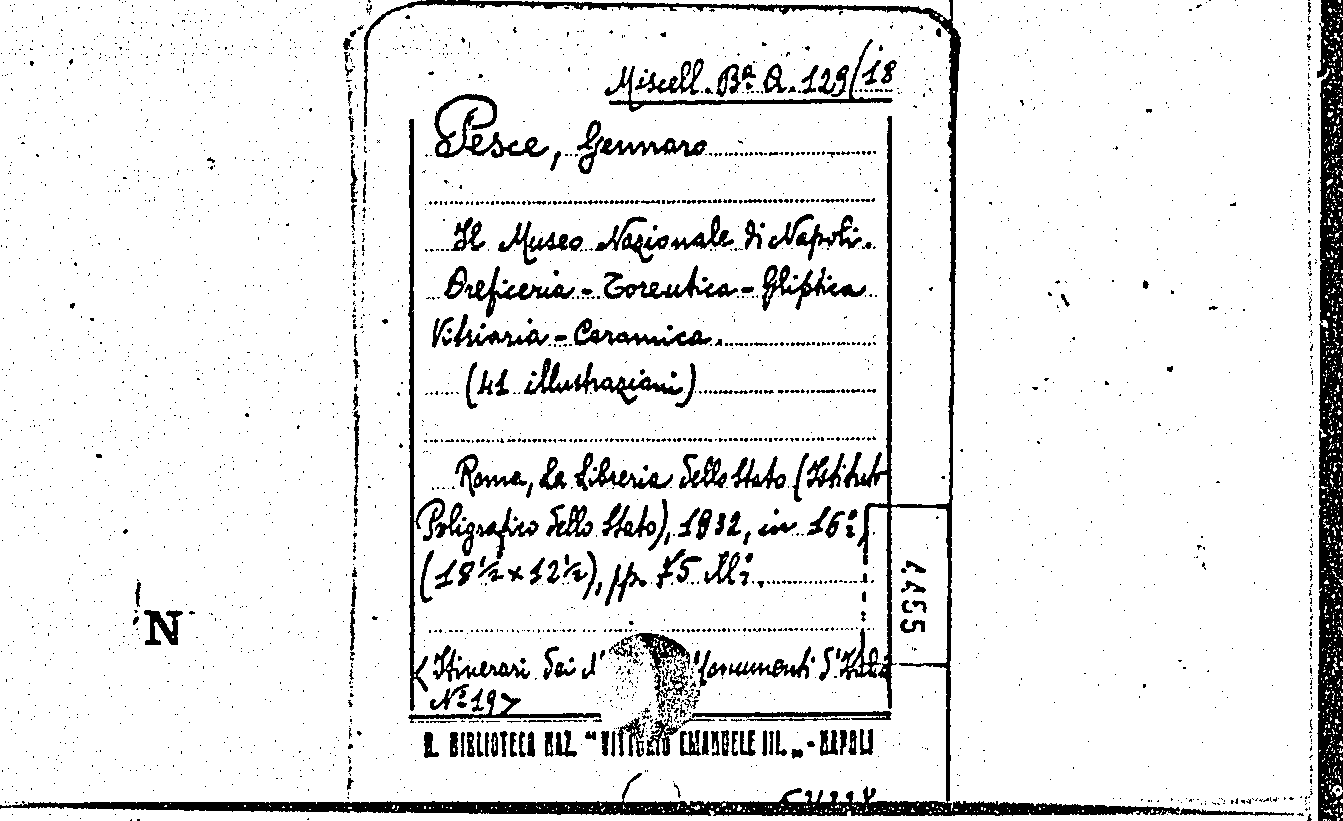 Miscell. Bª Q. 129/18
Pesce, Gennaro
Il Museo Nazionale di Napoli.
Oreficeria - Toreutica - Gliptica
Vitriaria - Ceramica.
(41 illustrazioni)
Roma, La Libreria dello Stato (Istituto
Poligrafico dello Stato), 1932, in 16º
(18½ x 12½), pp. 75
4455
(Itinerari dei Monumenti d'Italia
Nº 19)
N
R. BIBLIOTECA NAZ. "VITTORIO EMANUELE III." - NAPOLI